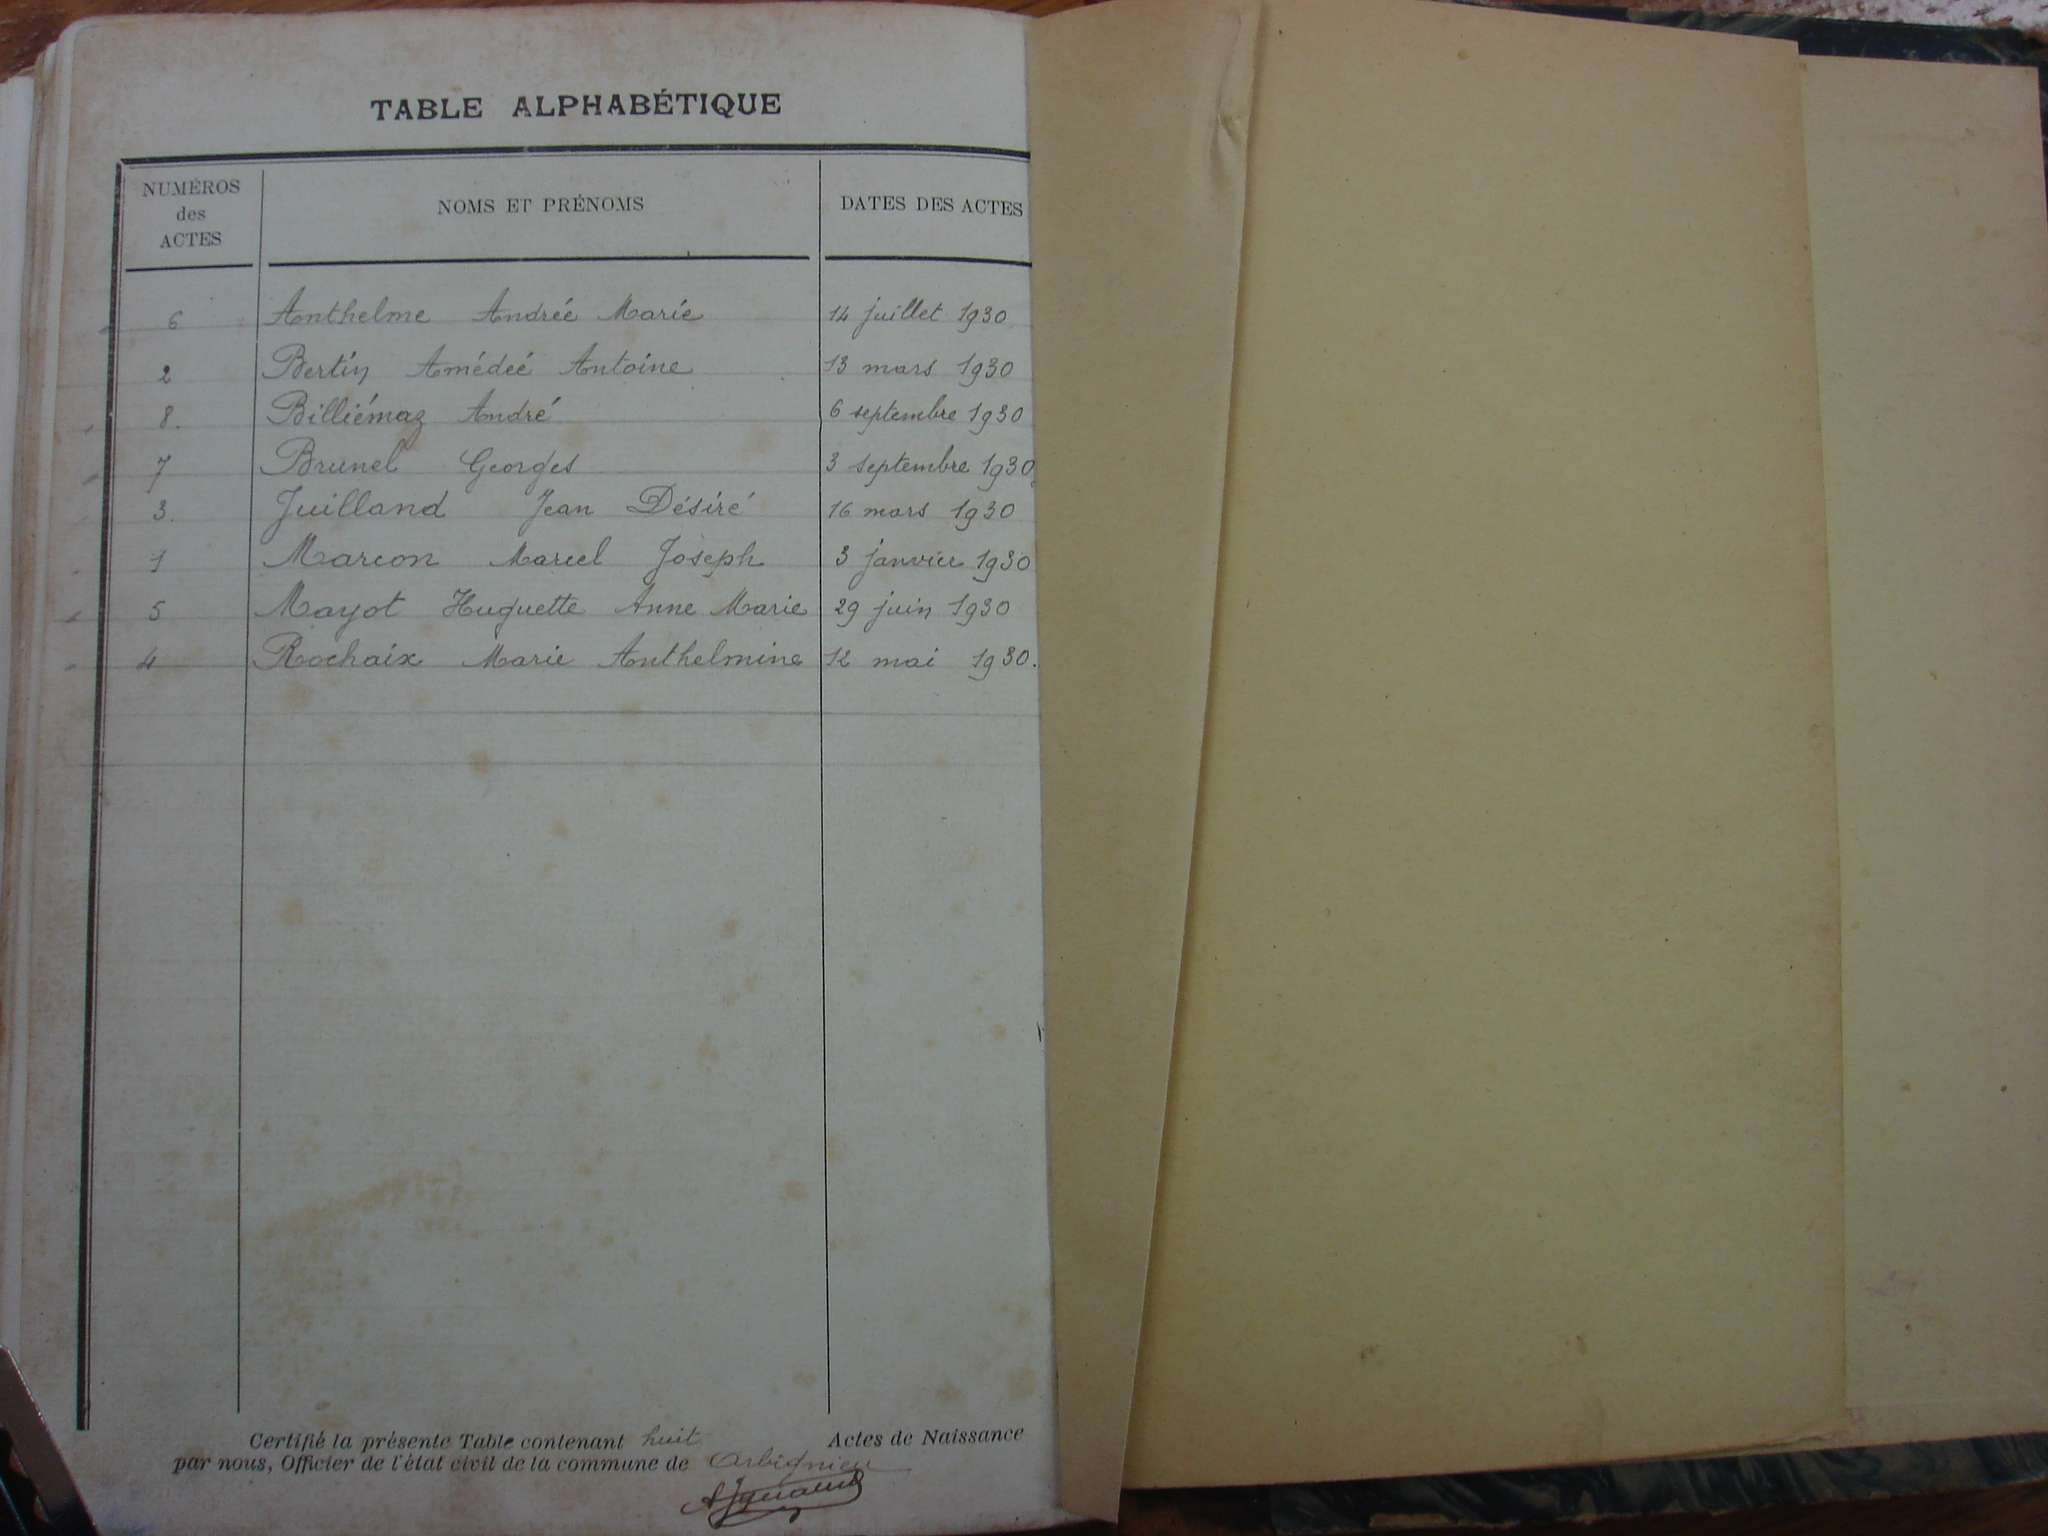 TABLE ALPHABÉTIQUE
NUMÉROS des ACTES NOMS ET PRÉNOMS DATES DES ACTES
6 Anthelme Andrée Marie 14 juillet 1930
2 Bertin Amédeé Antoine 13 mars 1930
8. Billiémaz André 6 septembre 1930
7 Brunel Georges 3 septembre 1930
3. Juilland Jean Désiré 16 mars 1930
1 Marcon Marcel Joseph 3 janvier 1930
5 Mayot Huguette Anne Marie 29 juin 1930
4 Rochaix Marie Anthelmine 12 mai 1930.
Certifié la présente Table contenant huit Actes de Naissance
par nous, Officier de l'état civil de la commune de Arbignieu